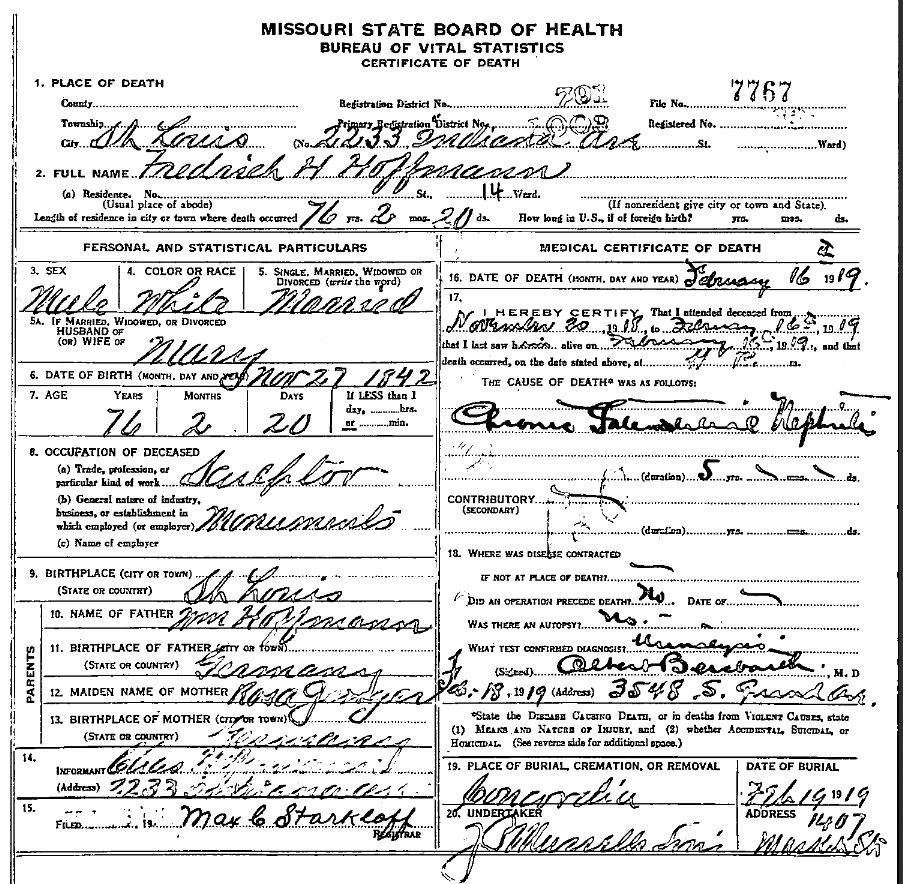 MISSOURI STATE BOARD OF HEALTH
BUREAU OF VITAL STATISTICS
CERTIFICATE OF DEATH
1. PLACE OF DEATH
County
Registration District No. 791
File No. 7767
Township
Primary Registration District No. 1009
Registered No.
City St Louis (No. 2233 Indiana Ave St. Ward)
2. FULL NAME Fredrich H Hoffmann
(a) Residence. No. St., 14 Ward.
(Usual place of abode) (If nonresident give city or town and State)
Length of residence in city or town where death occurred 76 yrs. 2 mos. 20 ds. How long in U.S., if of foreign birth? yrs. mos. ds.
PERSONAL AND STATISTICAL PARTICULARS
3. SEX
Male
4. COLOR OR RACE
White
5. SINGLE, MARRIED, WIDOWED OR
DIVORCED (write the word)
Married
5A. IF MARRIED, WIDOWED, OR DIVORCED
HUSBAND OF
(OR) WIFE OF Mary
6. DATE OF BIRTH (MONTH, DAY AND YEAR) Nov 27 1842
7. AGE YEARS MONTHS DAYS If LESS than 1
day, hrs.
or min.
76 2 20
8. OCCUPATION OF DECEASED
(a) Trade, profession, or
particular kind of work Sculptor
(b) General nature of industry,
business, or establishment in
which employed (or employer) Monuments
(c) Name of employer
9. BIRTHPLACE (CITY OR TOWN)
(STATE OR COUNTRY) St Louis
PARENTS
10. NAME OF FATHER Wm Hoffmann
11. BIRTHPLACE OF FATHER (CITY OR TOWN)
(STATE OR COUNTRY) Germany
12. MAIDEN NAME OF MOTHER Rosa
13. BIRTHPLACE OF MOTHER (CITY OR TOWN)
(STATE OR COUNTRY) Germany
14.
INFORMANT
(Address) 2233 Indiana Ave
15.
FILED 19 Max C Starkloff
REGISTRAR
MEDICAL CERTIFICATE OF DEATH
16. DATE OF DEATH (MONTH, DAY AND YEAR) February 16 1919.
17.
I HEREBY CERTIFY, That I attended deceased from
November 20, 1918, to February 16, 1919
that I last saw him alive on February 16, 1919, and that
death occurred, on the date stated above, at m.
THE CAUSE OF DEATH* WAS AS FOLLOWS:
Chronic Interstitial Nephritis
(duration) 5 yrs. mos. ds.
CONTRIBUTORY
(SECONDARY)
(duration) yrs. mos. ds.
18. WHERE WAS DISEASE CONTRACTED
IF NOT AT PLACE OF DEATH?
DID AN OPERATION PRECEDE DEATH? No. DATE OF
WAS THERE AN AUTOPSY? No.
WHAT TEST CONFIRMED DIAGNOSIS? Urinalysis
(Signed) Albert, M. D
Feb. 18, 1919 (Address) 3548 S. Grand Ave.
*State the DISEASE CAUSING DEATH, or in deaths from VIOLENT CAUSES, state
(1) MEANS AND NATURE OF INJURY, and (2) whether ACCIDENTAL, SUICIDAL, or
HOMICIDAL. (See reverse side for additional space.)
19. PLACE OF BURIAL, CREMATION, OR REMOVAL
Concordia
DATE OF BURIAL
Feb 19 1919
20. UNDERTAKER
ADDRESS
1407